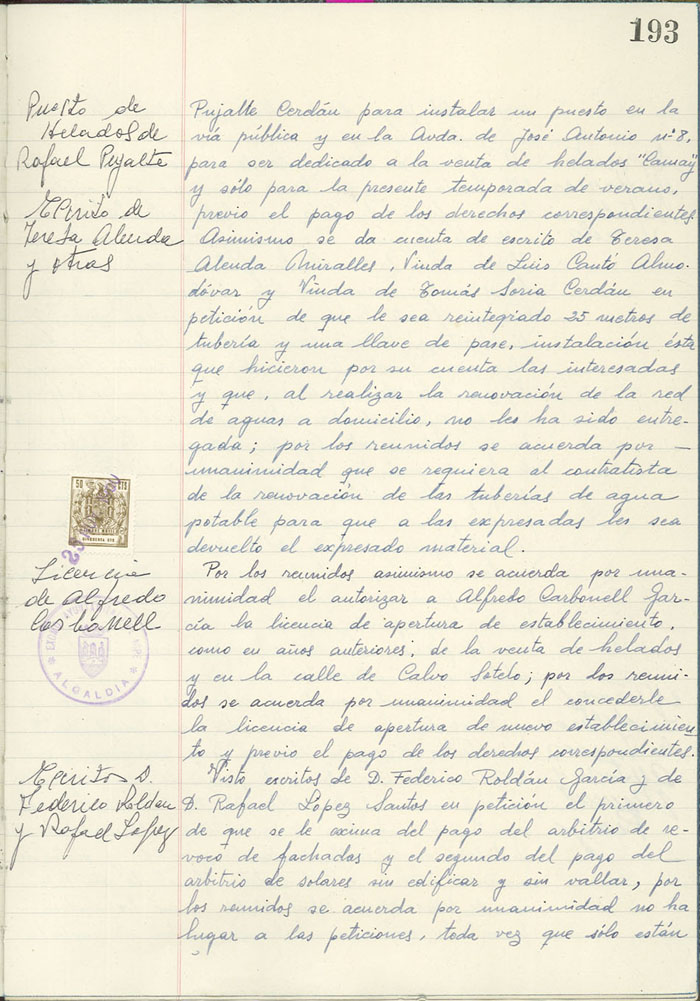 193
Puesto de
Helados de
Rafael Pujalte
Escrito de
Teresa Alenda
y otras
Pujalte Cerdán para instalar un puesto en la
vía pública y en la Avda. de José Antonio nº 8,
para ser dedicado a la venta de helados "Camay"
y sólo para la presente temporada de verano,
previo el pago de los derechos correspondientes.
Asimismo se da cuenta de escrito de Teresa
Alenda Miralles, Viuda de Luis Cantó Almo-
dóvar y Viuda de Tomás Soria Cerdán en
petición de que le sea reintegrado 25 metros de
tubería y una llave de pase, instalación ésta
que hicieron por su cuenta las interesadas
y que, al realizar la renovación de la red
de aguas a domicilio, no les ha sido entre-
gada; por los reunidos se acuerda por —
unanimidad que se requiera al contratista
de la renovación de las tuberías de agua
potable para que a las expresadas les sea
devuelto el expresado material.
50 CTS
Licencia
de Alfredo
Carbonell
ALCALDIA
Por los reunidos asimismo se acuerda por una-
nimidad el autorizar a Alfredo Carbonell Gar-
cía la licencia de apertura de establecimiento,
como en años anteriores, de la venta de helados
y en la calle de Calvo Sotelo; por los reuni-
dos se acuerda por unanimidad el concederle
la licencia de apertura de nuevo establecimien
to y previo el pago de los derechos correspondientes.
Escritos D.
Federico Roldán
y Rafael Lopez
Visto escritos de D. Federico Roldán García y de
D. Rafael Lopez Santos en petición el primero
de que se le exima del pago del arbitrio de re-
voco de fachadas y el segundo del pago del
arbitrio de solares sin edificar y sin vallar, por
los reunidos se acuerda por unanimidad no ha
lugar a las peticiones, toda vez que sólo están